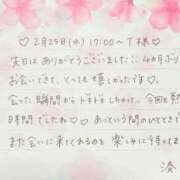 ♡2月25日(水) 17:00〜 T様♡
先日はありがとうございました!! 4ヵ月ぶり
お会いできて、とっても嬉しかったです♡
会った瞬間からドキドキしちゃって、今回も
時間でしたね♡
また会いに来てくれるのを楽しみに待ってま
湊